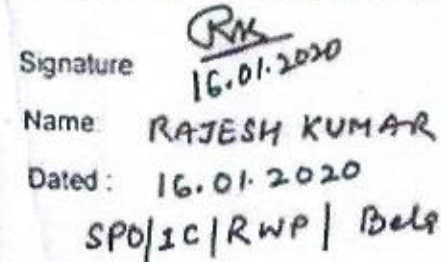 Signature
16.01.2020
Name: RAJESH KUMAR
Dated : 16.01.2020
SPO/IC/RWP/ Bela